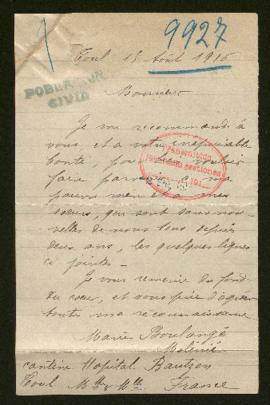 9927
Toul 15 Août 1916
POBLACION
CIVIL
Monsieur
Je me recommande à
vous et à votre inépuisable
bonté pour vouloir
faire parvenir à ma
pauvre mère et à mes
sœurs, qui sont sans nou-
velles de nous tous depuis
deux ans, les quelques lignes
ci jointes.
Je vous remercie du fond
du cœur, et vous prie d'agréer
toutes ma reconnaissance
Marie Boulangé
cantine Hopital Bautzen
Toul Mthe & Mlle France